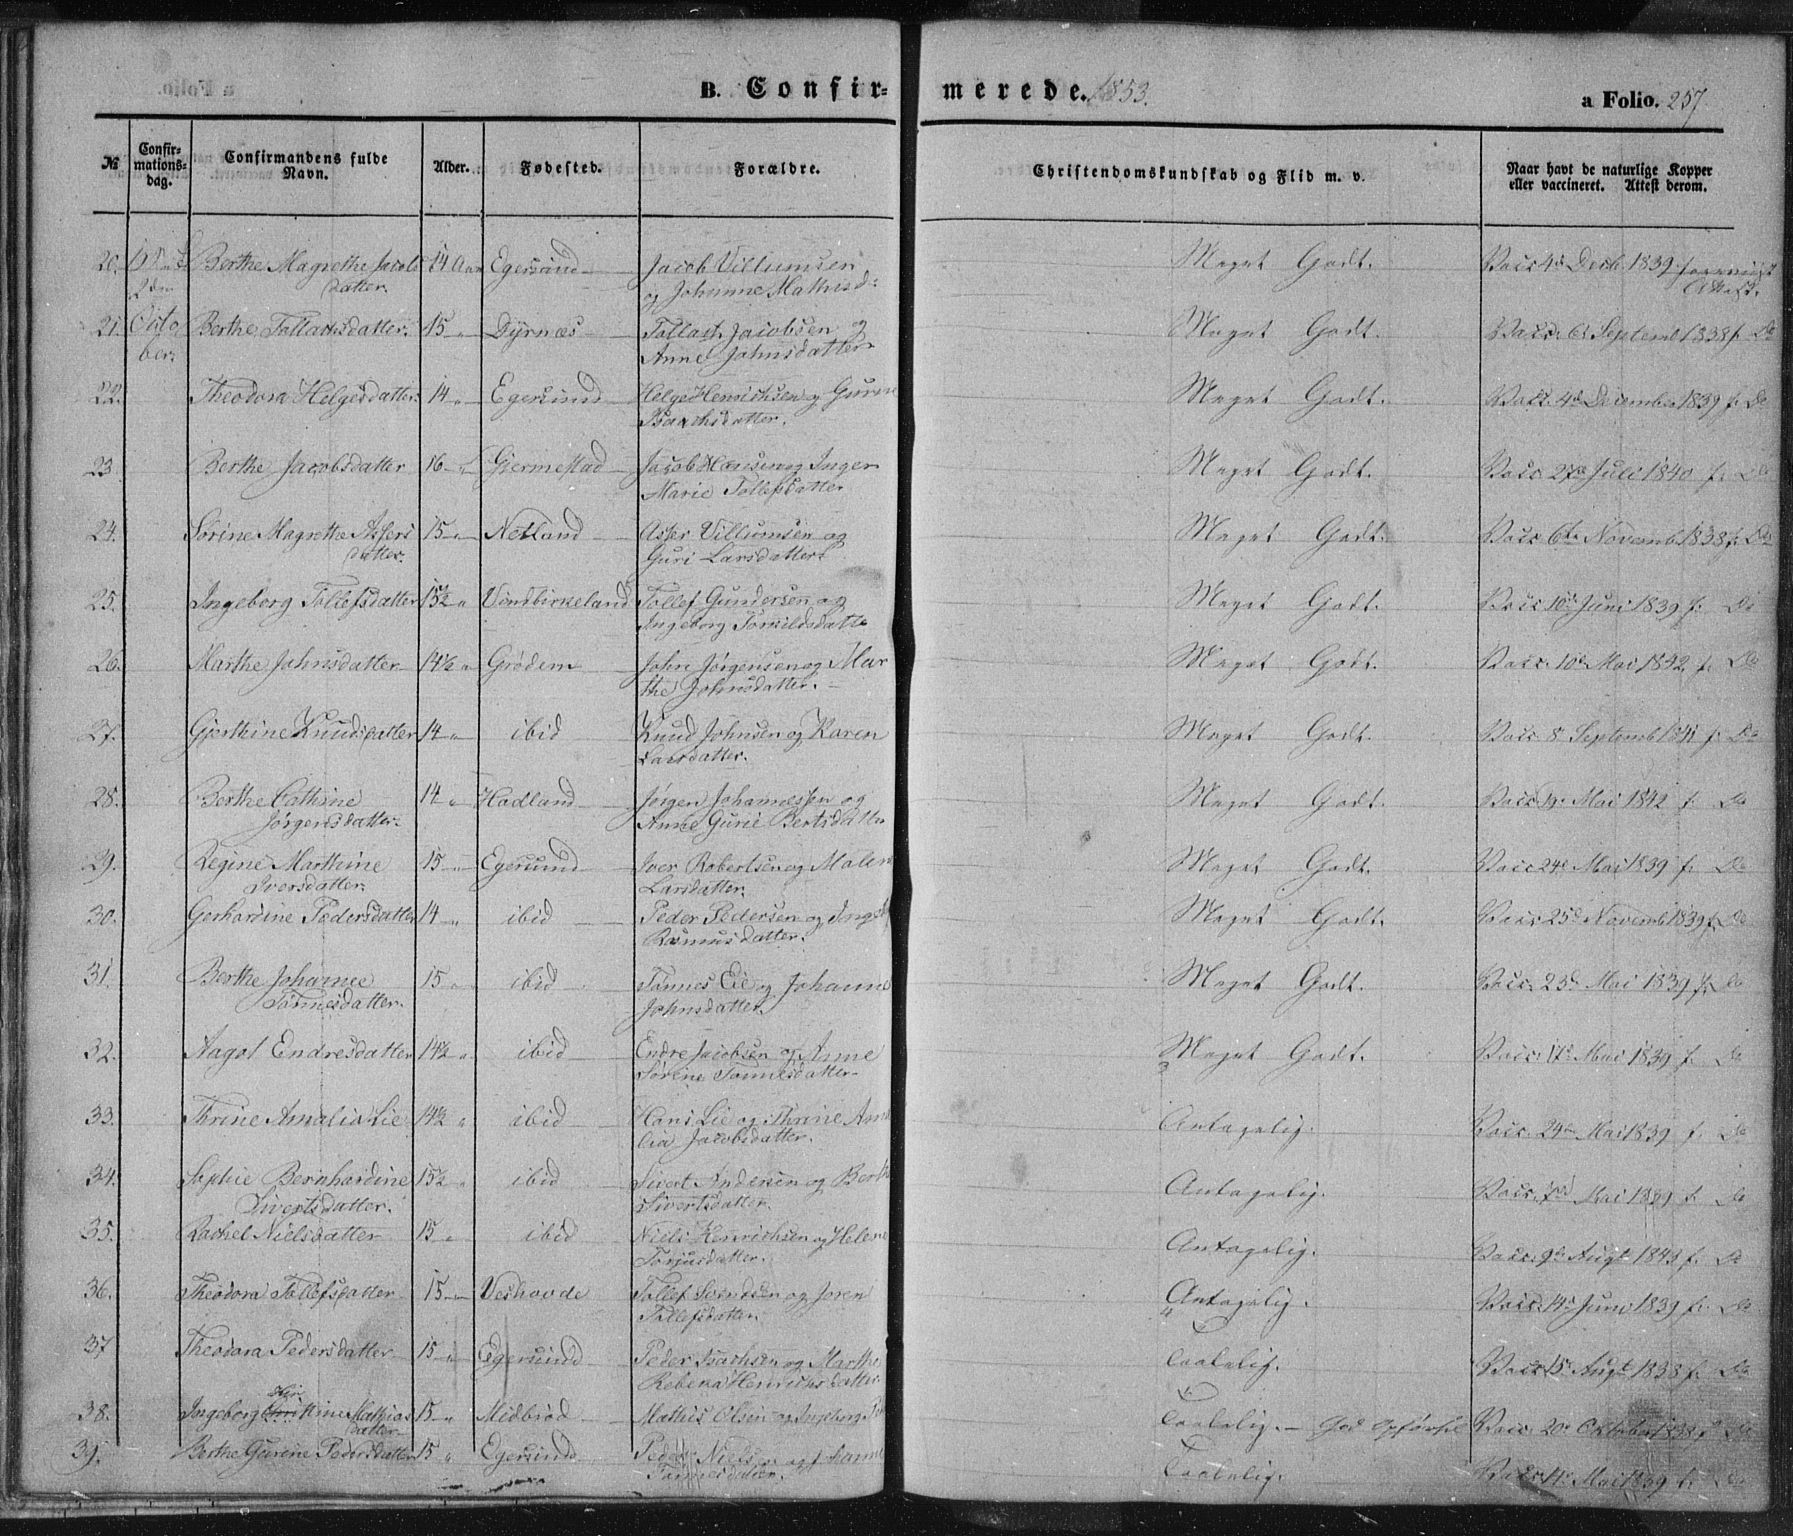 B. Confirmerede. 1853.
a Folio. 257
№
Confirmations-dag.
Confirmandens fulde Navn.
Alder.
Fødested.
Forældre.
Christendomskundskab og Flid m. v.
Naar havt de naturlige Kopper eller vaccineret. Attest derom.
20. Berthe Magrethe Jacobs 14 Aar Egersund Jacob Villumsen Meget Godt. Vacc. 4d Decb. 1839
2den datter. og Johanne Mathisd: Attest.
21. Octo Berthe Tollachsdatter. 15 " Dyrnæs Tollach Jacobsen og Meget Godt. Vacc. 6d Septemb 1838 f. Do
ber. Anne Johnsdatter
22. Theodora Helgesdatter. 14 " Egersund Helge Henrichsen og Gurine Meget Godt. Vacc. 4d December 1839 f. Do
Isaachsdatter.
23 Berthe Jacobsdatter 16 " Gjermestad Jacob Hansen og Inger Meget Godt. Vacc. 27d Juli 1840 f. Do
Marie Tollefsdatter
24. Sørine Magrethe Assers 15 " Netland Asser Villumsen og Meget Godt. Vacc. 6te Novemb. 1838 f. Do
datter. Guri Larsdatter
25. Ingeborg Tollefsdatter 15½ " Vandbirkeland Tollef Gundersen og Meget Godt. Vacc. 10d Juni 1839 f. Do
Ingeborg
26. Marthe Johnsdatter 14½ " Grødem John Jørgensen og Mar Meget Godt. Vacc. 10d Mai 1842 f. Do
the Johnsdatter.
27. Gjerthine Knudsdatter 14 " ibid Knud Johnsen og Karen Meget Godt. Vacc. 8 Septemb 1841 f. Do
Larsdatter.
28. Berthe Cathine 14 " Hadland Jørgen Johannessen og Meget Godt. Vacc. 19d Mai 1842 f. Do
Jørgensdatter. Anne Gurie Bertsdatter
29. Regine Marthine 15 " Egersund Iver Robertsen og Malene Meget Godt. Vacc 24d Mai 1839 f. Do
Iversdatter. Larsdatter.
30. Gerhardine Pedersdatter 14 " ibid Peder Pedersen og Meget Godt. Vacc 25d Novemb 1839 f. Do
Rasmusdatter.
31. Berthe Johanne 15 " ibid Tønnes Eie og Johanne Meget Godt. Vacc. 23d Mai 1839 f. Do
Tønnesdatter. Johnsdatter.
32. Aagot Endresdatter 14½ " ibid Endre Jacobsen og Anne Meget Godt. Vacc. 17d Mai 1839 f. Do
Sørine Tønnesdatter 3
33. Thrine Amalia Lie 14½ " ibid Hans Lie og Thrine Ama Antagelig. Vacc. 24de Mai 1839 f. Do
lia Jacobsdatter.
34. Sophie Bernhardine 15½ " ibid Sivert Andersen og Berthe Antagelig. Vacc. Mai 1839 f. Do
Sivertsdatter. Sivertsdatter.
35. Rachel Nielsdatter 15 " ibid Niels Henrichsen og Helene Antagelig. Vacc. 9d Augt 1843 f. Do
Torjusdatter.
36. Theodora Tollefsdatter 15 Veshovde Tollef Svendsen og Joren Antagelig. Vacc. 14d Juni 1839 f. Do
Tollefsdatter. 4
37 Theodora Pedersdatter 15 " Egersund Peder Isachsen og Marthe Taalelig. Vacc. 15d Augt 1838 f. Do
Rebeka Henrichsdatter.
38. Ingeborg Mathias 15 " Midbrød Mathis Olsen og Ingeborg Taalelig. — God Opførsel Vacc. 20d Oktober 1838 f. Do
datter
39. Berthe Gurine Pedersdatter 15 " Egersund Peder Nielsen og Taalelig. Vacc. 14d Mai 1839 f. Do
Tønnesdatter.